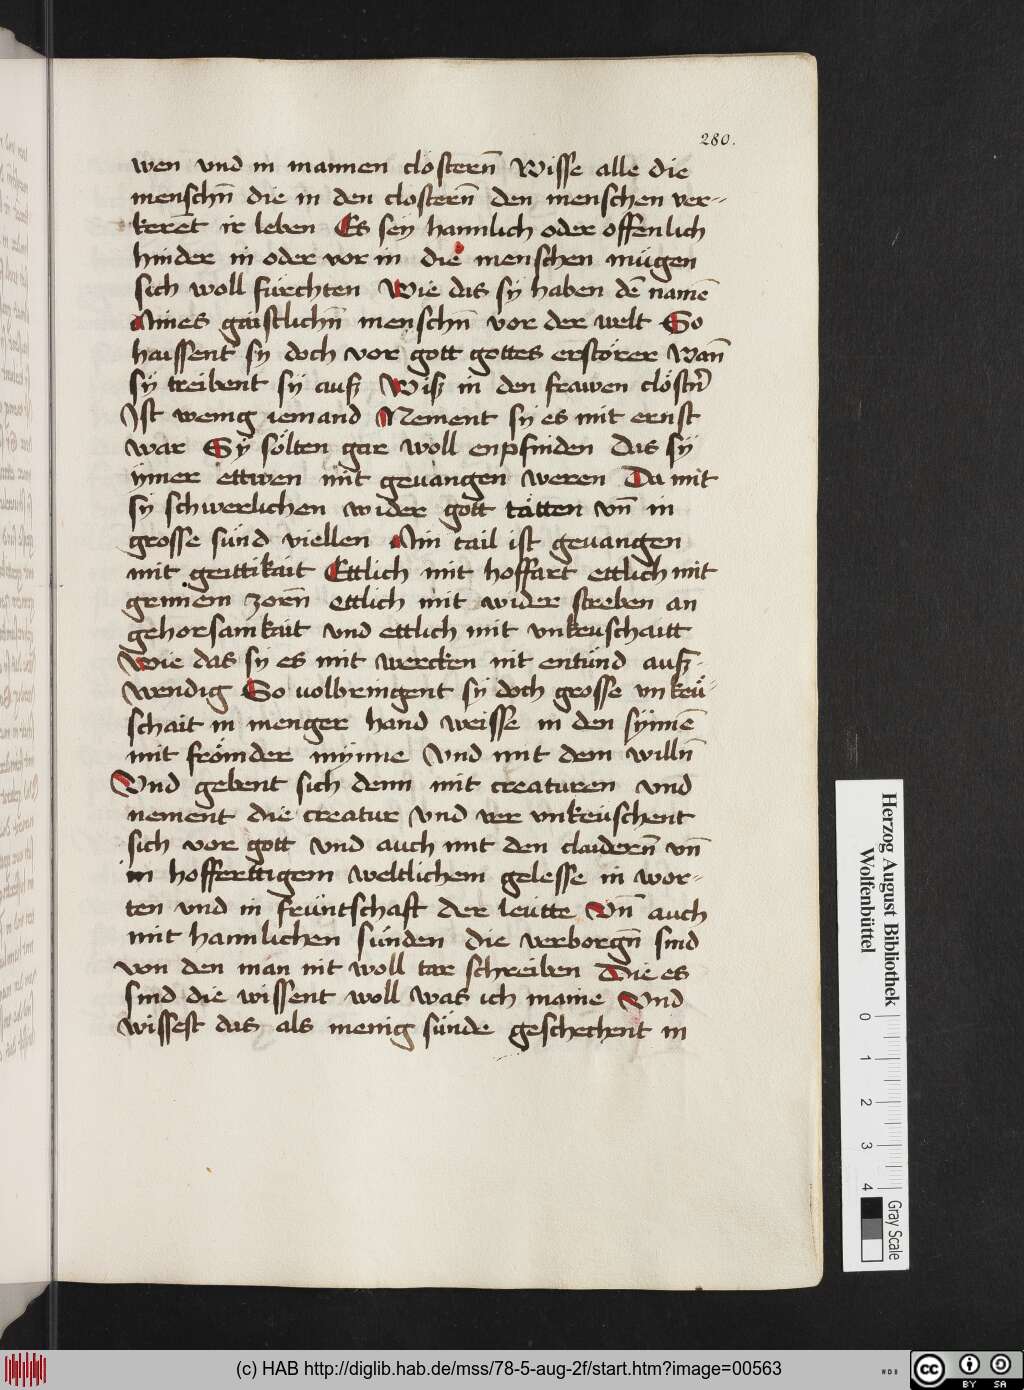 280.
wen vnd in mannen clöstern̄ Wisse alle die
menschn̄ die in den clostern̄ den menschen ver-
kerēt ir leben Es seÿ haimlich oder offenlich
hinder in oder vor in die menschen mügen
sich woll fürchten Wie das sÿ haben dē namē
Aines gaistlichn̄ menschn̄ vor der welt So
haissent sÿ doch vor gott gottes erstörer Wan̄
sÿ treibent sÿ ausz Wisz in den frawen clöstn̄
Ist wenig iemand Nement sÿ es mit ernst
war Sÿ sölten gar woll enpfinden das sÿ
ÿmer ettwen mit geuangen weren Da mit
sÿ schwerlichen wider gott tätten vn̄ in
grosse sünd viellen Ain tail ist geuangen
mit geittikait Ettlich mit hoffart ettlich mit
grimem zorn̄ ettlich mit wider streben an
gehorsamkait vnd ettlich mit vnkeuschaitt
Wie das sÿ es mit wercken nit entünd ausz-
wendig So uolbringent sÿ doch grosse vnkeü-
schait in menger hand weisse in den sÿnnē
mit frömder mÿnne Vnd mit dem willn̄
Vnd gebent sich denn mit creaturen vnd
nement die creatur Vnd ver vnkeuschent
sich vor gott vnd auch mit den claidern̄ vn̄
in hofferttigem weltlichem gelesse in wor-
ten vnd in früntschaft der leütte Vn̄ auch
mit haimlichen sünden die verborgn̄ sind
von den man nit woll tar schreiben Die es
sind die wissent woll was ich maine Vnd
wissest das als menig sünde geschechent in
Herzog August Bibliothek
Wolfenbüttel
0 1 2 3 4
Gray Scale
(c) HAB http://diglib.hab.de/mss/78-5-aug-2f/start.htm?image=00563
WDB
cc BY SA